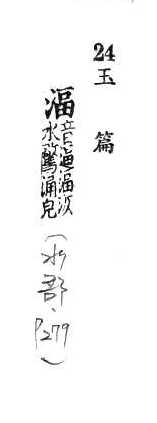 24
玉篇
湢
音逼湢汳
水驚涌皃
(水部、P279)